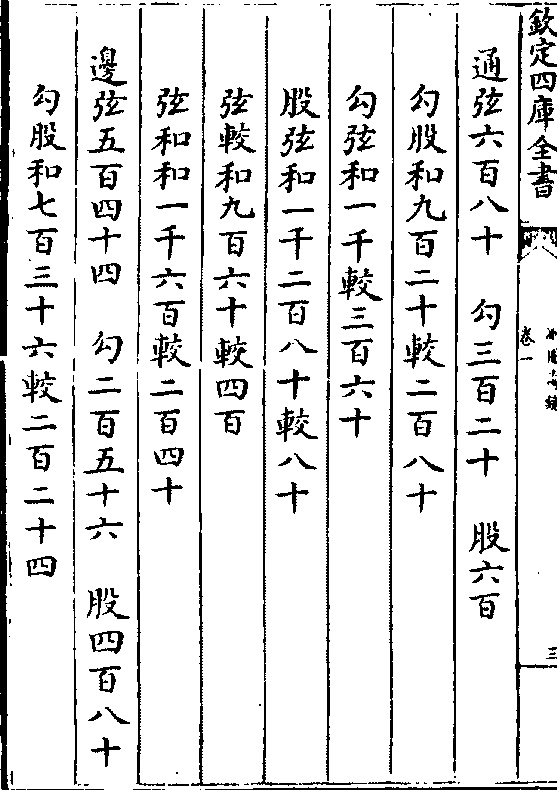 欽定四庫全書
卷一
三
通弦六百八十　勾三百二十　股六百
勾股和九百二十較二百八十
勾弦和一千較三百六十
股弦和一千二百八十較八十
弦較和九百六十較四百
弦和和一千六百較二百四十
邊弦五百四十四　勾二百五十六　股四百八十
勾股和七百三十六較二百二十四